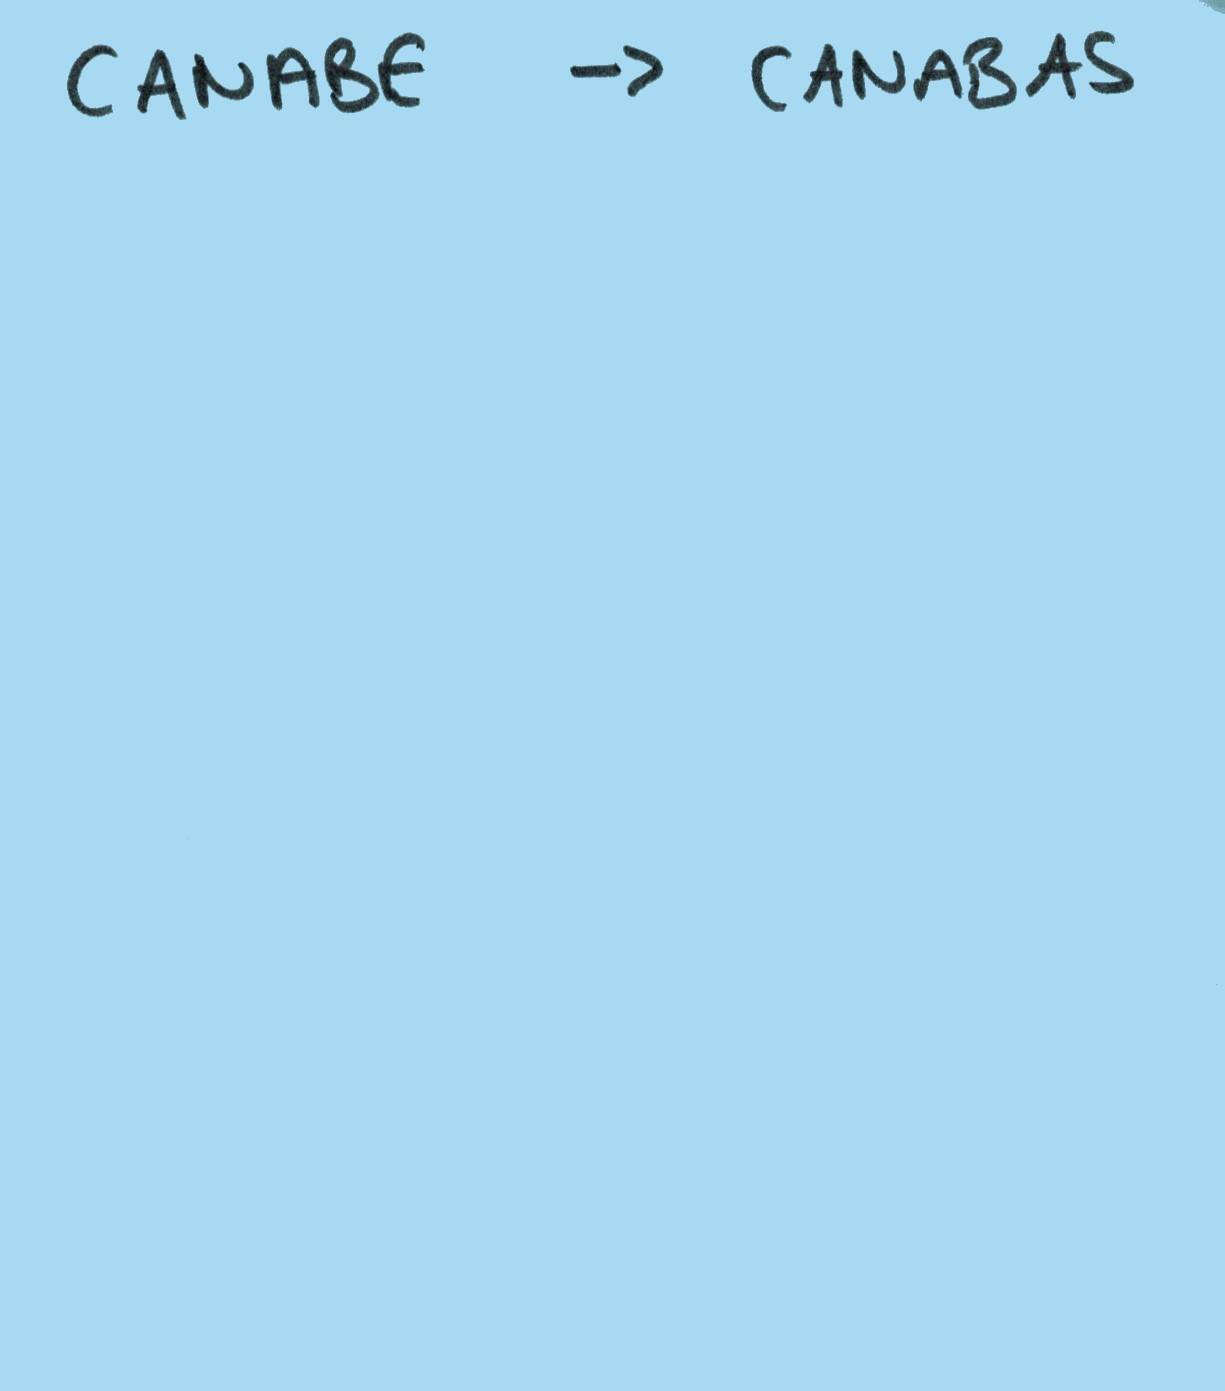 CANABE -> CANABAS